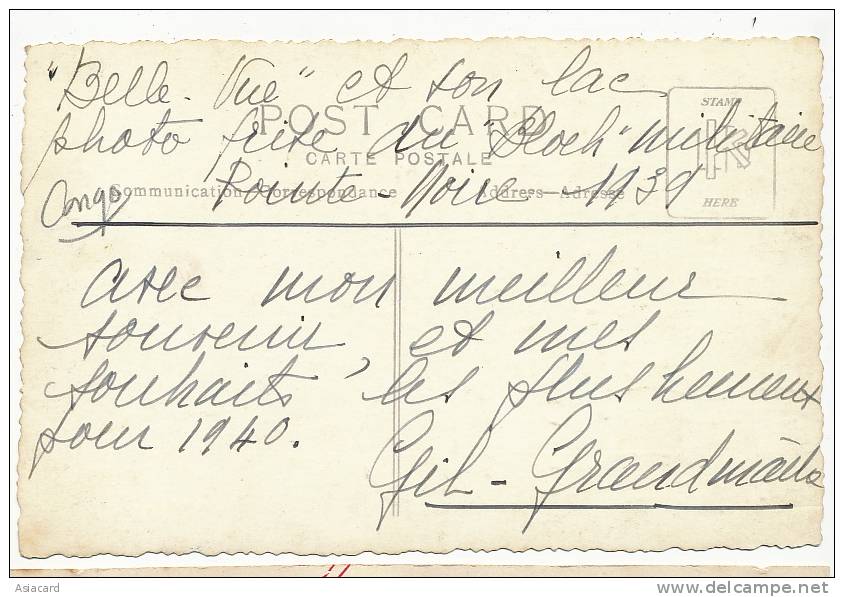 "Belle-Vue" et son lac
POST CARD
photo prise du "Bloch" militaire
CARTE POSTALE
STAMP
HERE
Communication - Correspondance
Address - Adresse
Congo
Pointe-Noire - 1939
avec mon meilleur
souvenir, et mes
souhaits les plus heureux
pour 1940.
Gil-Grandmaître
Asiacard
www.delcampe.net